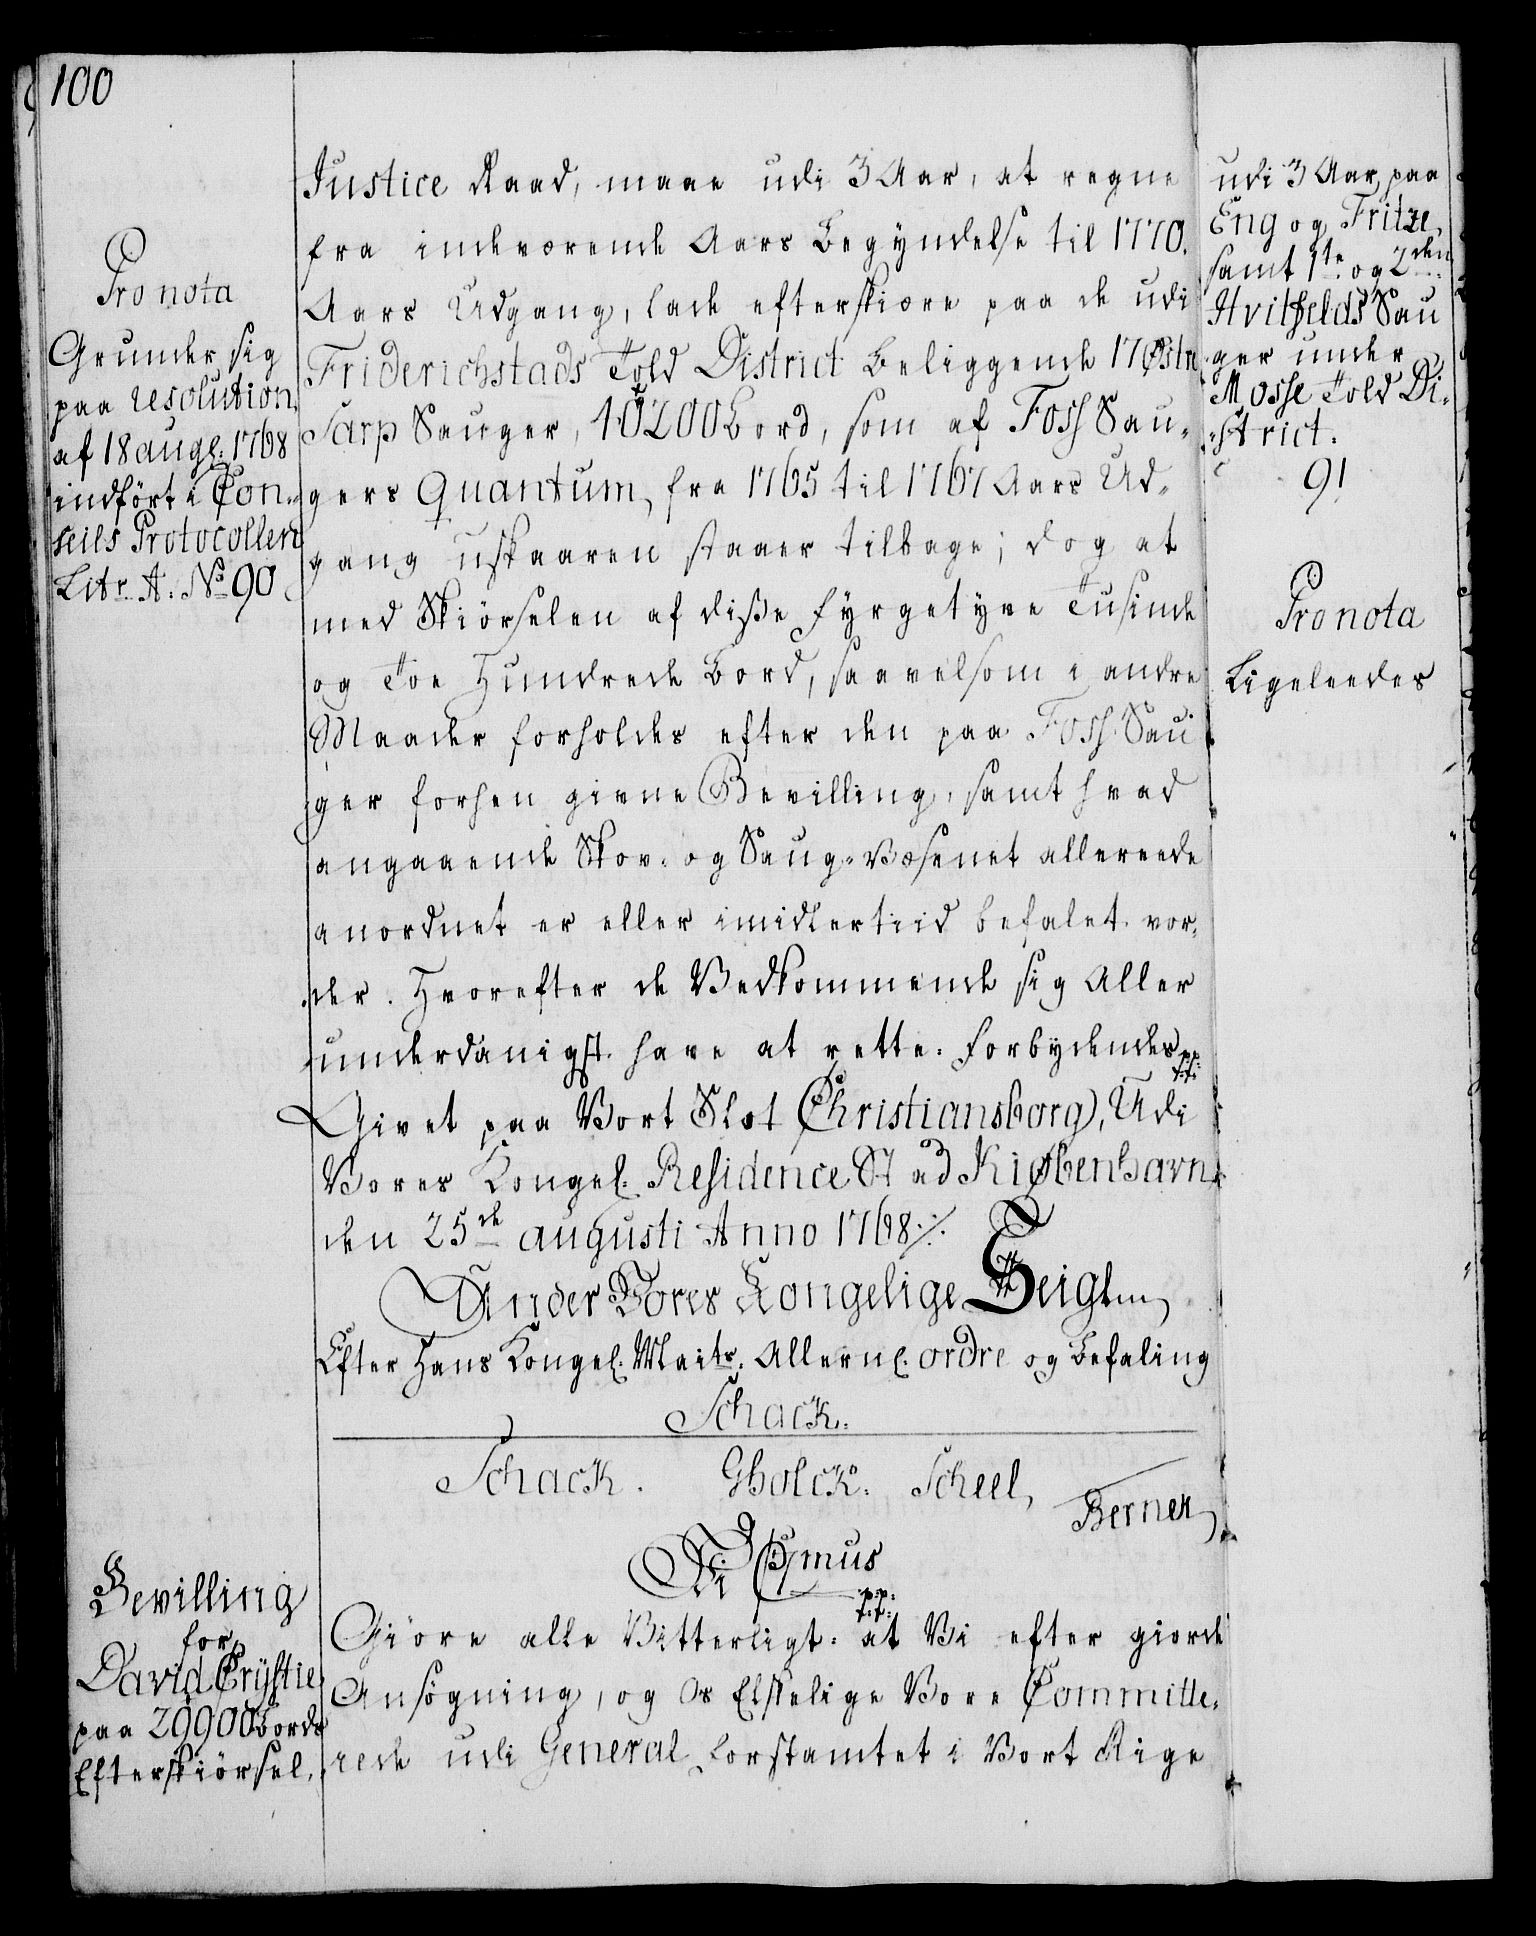 100
Pro nota
Grunder sig
paa resolution
af 18 augl: 1768
indført i Con-
seils Protocollen
Litr. A: No 90
Justice Raad, maae udi 3 Aar, at regne
fra indeværende Aars Begyndelse til 1770.
Aars Udgang, lade efterskiære paa de udi
Friderichstads Told District beliggende 17 Østre
Sarp Sauger, 40200 Bord, som af Foss Sau-
gers Quantum, fra 1765 til 1767 Aars Ud-
gang uskaaren staaer tilbage; dog at
med Skiørselen af diße fyrgetyve Tusinde
og Toe Hundrede Bord, saavelsom i andre
Maader forholdes efter den paa Foss Sau
ger forhen givne Bevilling, samt hvad
angaaende Skov- og Saug-Væsenet allereede
anordnet er eller imidlertiid befalet vor-
der. Hvorefter de Vedkommende sig Aller
underdanigst have at rette. Forbydendes pp:
t:t:
Givet paa Vort Slot Christiansborg, Udi
Vores Kongel: Residence Stad Kiøbenhavn,
den 25de augusti Anno 1768 ./.
Under Vores Kongelige Seigl
Efter Hans Kongel: Maits: Allern: ordre og Befaling
Schack.
Schack. Gholck: Scheel, Berner
Bevilling
for
David Crystie
paa 29900 Bords
Efterskiørsel.
Vi C 7mus
pp:
t:t:
Giöre alle Vitterligt: at Vi efter giorde
Ansøgning, og Os Elskelige Vore Committe-
rede udi General Forstamtet i Vort Rige
udi 3 Aar, paa
Eng og Fritze,
samt 1te og 2den
Hvitfelds Sau
ger under
Mosse Told Di-
strict.
91
Pro nota
Ligeleedes